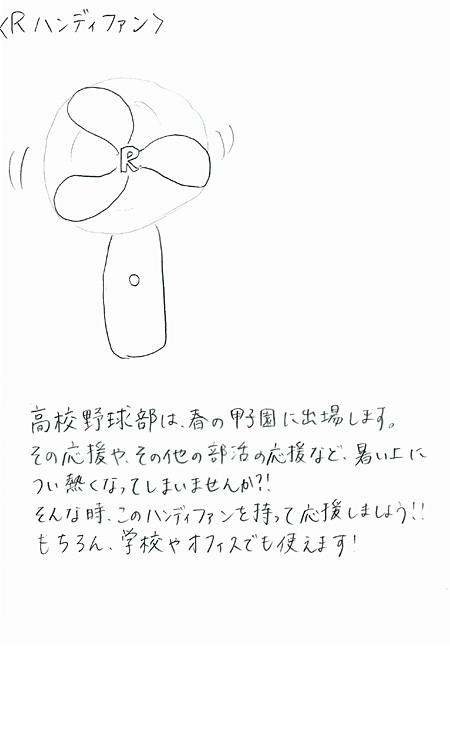 〈R ハンディファン〉
R
高校野球部は、春の甲子園に出場します。
その応援や、その他の部活の応援など、暑い上に
つい熱くなってしまいませんか?!
そんな時、このハンディファンを持って応援しましょう!!
もちろん、学校やオフィスでも使えます!